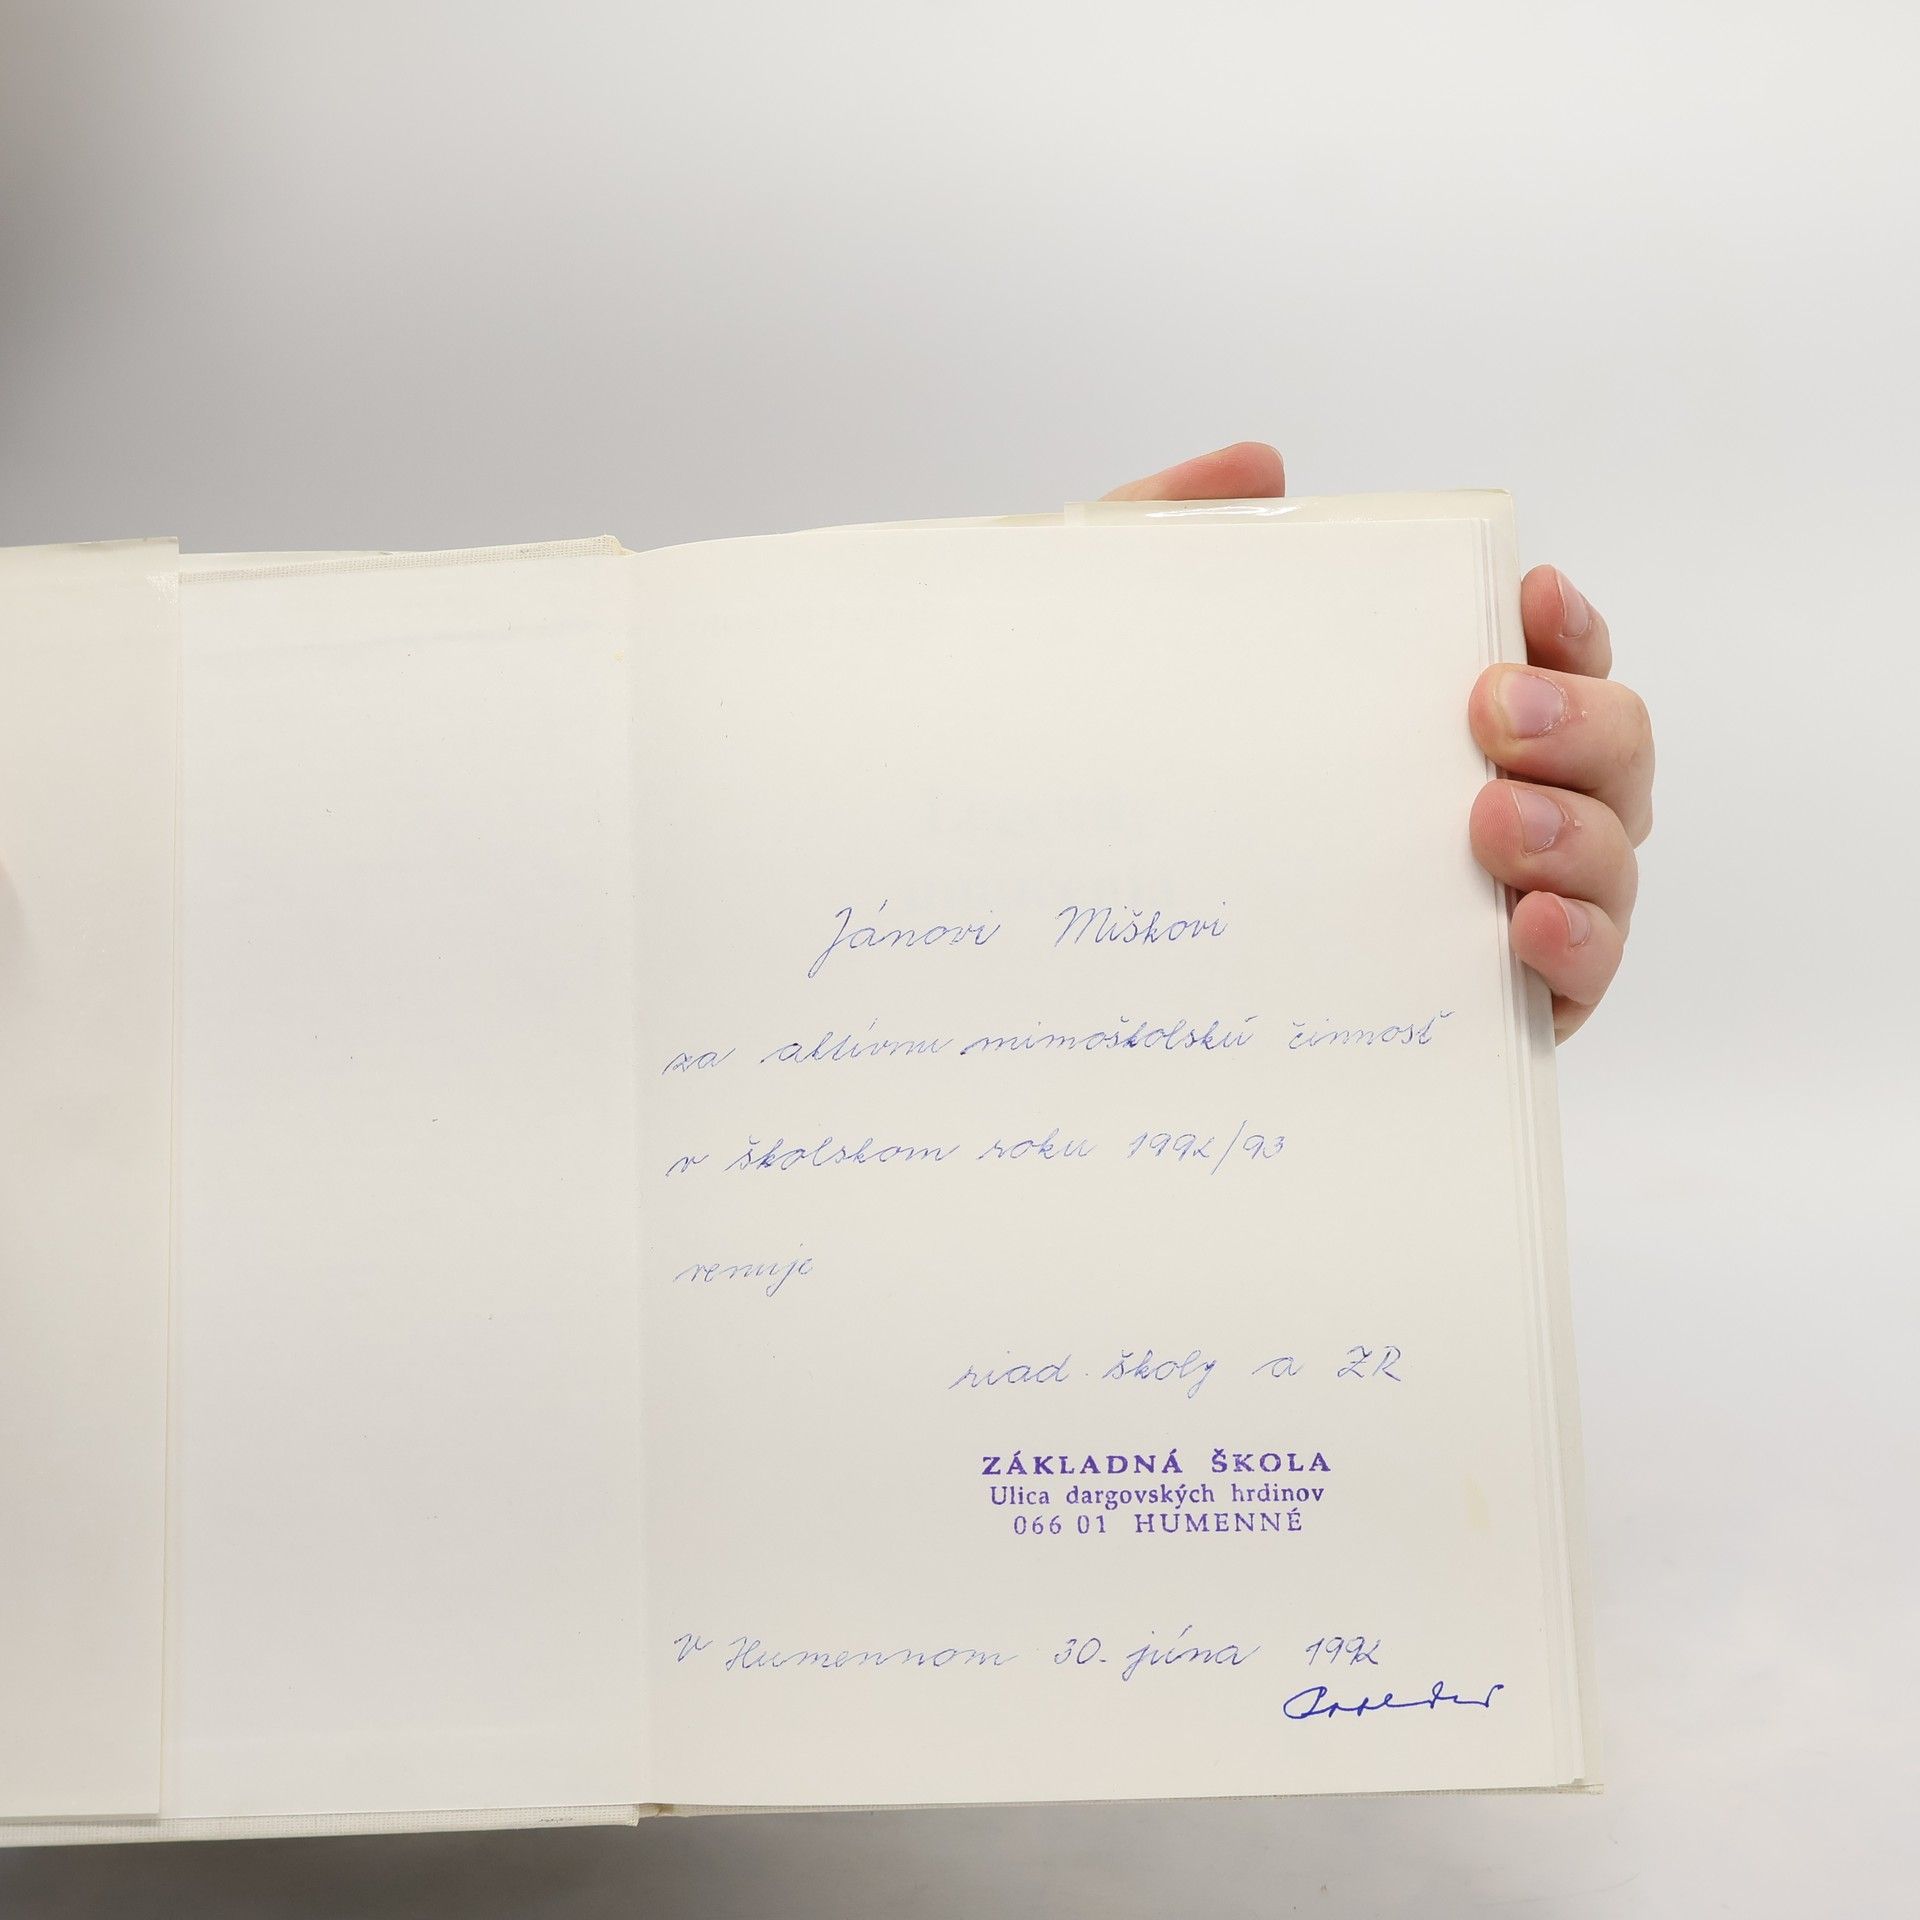 Jánovi Miškovi
za aktívnu mimoškolskú činnosť
v školskom roku 1992/93
venuje
riad. školy a ZR
ZÁKLADNÁ ŠKOLA
Ulica dargovských hrdinov
066 01 HUMENNÉ
V Humennom 30. júna 1992